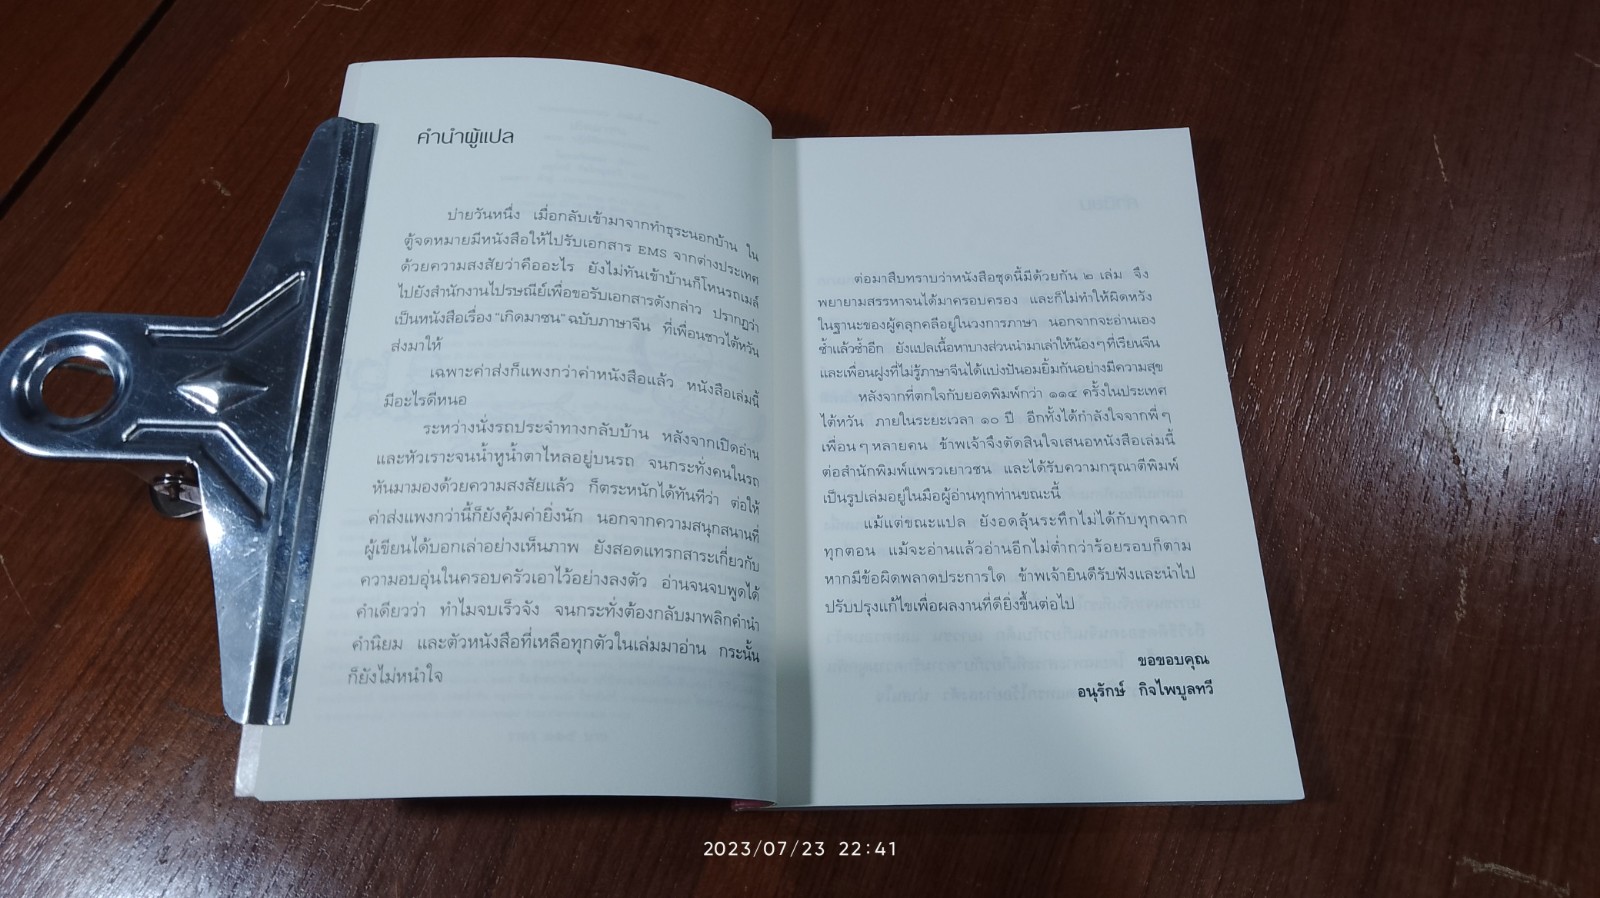 คำนำผู้แปล
บ่ายวันหนึ่ง เมื่อกลับเข้ามาจากทำธุระนอกบ้าน ใน
ตู้จดหมายมีหนังสือให้ไปรับเอกสาร EMS จากต่างประเทศ
ด้วยความสงสัยว่าคืออะไร ยังไม่ทันเข้าบ้านก็โหนรถเมล์
ไปยังสำนักงานไปรษณีย์เพื่อขอรับเอกสารดังกล่าว ปรากฏว่า
เป็นหนังสือเรื่อง “เกิดมาซน” ฉบับภาษาจีน ที่เพื่อนชาวไต้หวัน
ส่งมาให้
เฉพาะค่าส่งก็แพงกว่าค่าหนังสือแล้ว หนังสือเล่มนี้
มีอะไรดีหนอ
ระหว่างนั่งรถประจำทางกลับบ้าน หลังจากเปิดอ่าน
และหัวเราะจนน้ำหูน้ำตาไหลอยู่บนรถ จนกระทั่งคนในรถ
หันมามองด้วยความสงสัยแล้ว ก็ตระหนักได้ทันทีว่า ต่อให้
ค่าส่งแพงกว่านี้ก็ยังคุ้มค่ายิ่งนัก นอกจากความสนุกสนานที่
ผู้เขียนได้บอกเล่าอย่างเห็นภาพ ยังสอดแทรกสาระเกี่ยวกับ
ความอบอุ่นในครอบครัวเอาไว้อย่างลงตัว อ่านจนจบพูดได้
คำเดียวว่า ทำไมจบเร็วจัง จนกระทั่งต้องกลับมาพลิกคำนำ
คำนิยม และตัวหนังสือที่เหลือทุกตัวในเล่มมาอ่าน กระนั้น
ก็ยังไม่หนำใจ
ต่อมาสืบทราบว่าหนังสือชุดนี้มีด้วยกัน ๒ เล่ม จึง
พยายามสรรหาจนได้มาครอบครอง และก็ไม่ทำให้ผิดหวัง
ในฐานะของผู้คลุกคลีอยู่ในวงการภาษา นอกจากจะอ่านเอง
ซ้ำแล้วซ้ำอีก ยังแปลเนื้อหาบางส่วนนำมาเล่าให้น้องๆที่เรียนจีน
และเพื่อนฝูงที่ไม่รู้ภาษาจีนได้แบ่งปันอมยิ้มกันอย่างมีความสุข
หลังจากที่ตกใจกับยอดพิมพ์กว่า ๑๑๔ ครั้งในประเทศ
ไต้หวัน ภายในระยะเวลา ๑๐ ปี อีกทั้งได้กำลังใจจากพี่ๆ
เพื่อนๆ หลายคน ข้าพเจ้าจึงตัดสินใจเสนอหนังสือเล่มนี้
ต่อสำนักพิมพ์แพรวเยาวชน และได้รับความกรุณาตีพิมพ์
เป็นรูปเล่มอยู่ในมือผู้อ่านทุกท่านขณะนี้
แม้แต่ขณะแปล ยังอดลุ้นระทึกไม่ได้กับทุกฉาก
ทุกตอน แม้จะอ่านแล้วอ่านอีกไม่ต่ำกว่าร้อยรอบก็ตาม
หากมีข้อผิดพลาดประการใด ข้าพเจ้ายินดีรับฟังและนำไป
ปรับปรุงแก้ไขเพื่อผลงานที่ดียิ่งขึ้นต่อไป
ขอขอบคุณ
อนุรักษ์ กิจไพบูลทวี
2023/07/23 22:41